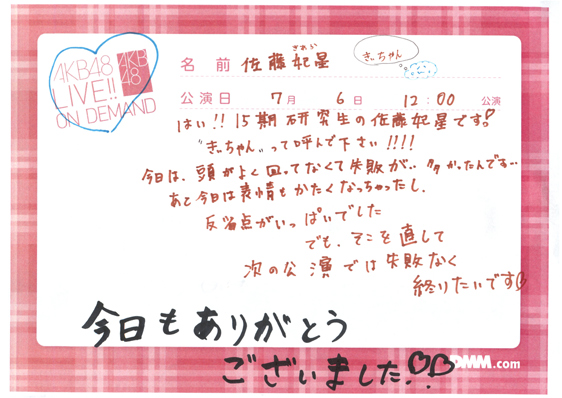 AKB48
LIVE!!
ON DEMAND
AKB
48
名前 佐藤妃星
きらら
きぃちゃん
公演日 7月 6日 12:00 公演
はい!! 15期研究生の佐藤妃星です。
"きぃちゃん"って呼んで下さい!!!!
今日は、頭がよく回ってなくて失敗が、多かったんです…
あと今日は表情もかたくなっちゃったし、
反省点がいっぱいでした
でも、そこを直して
次の公演では失敗なく
終りたいです♡
今日もありがとう
ございました!♡♡
DMM.com